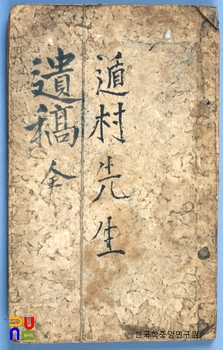 遁村先生
遺稿 全
© 한국학중앙연구원